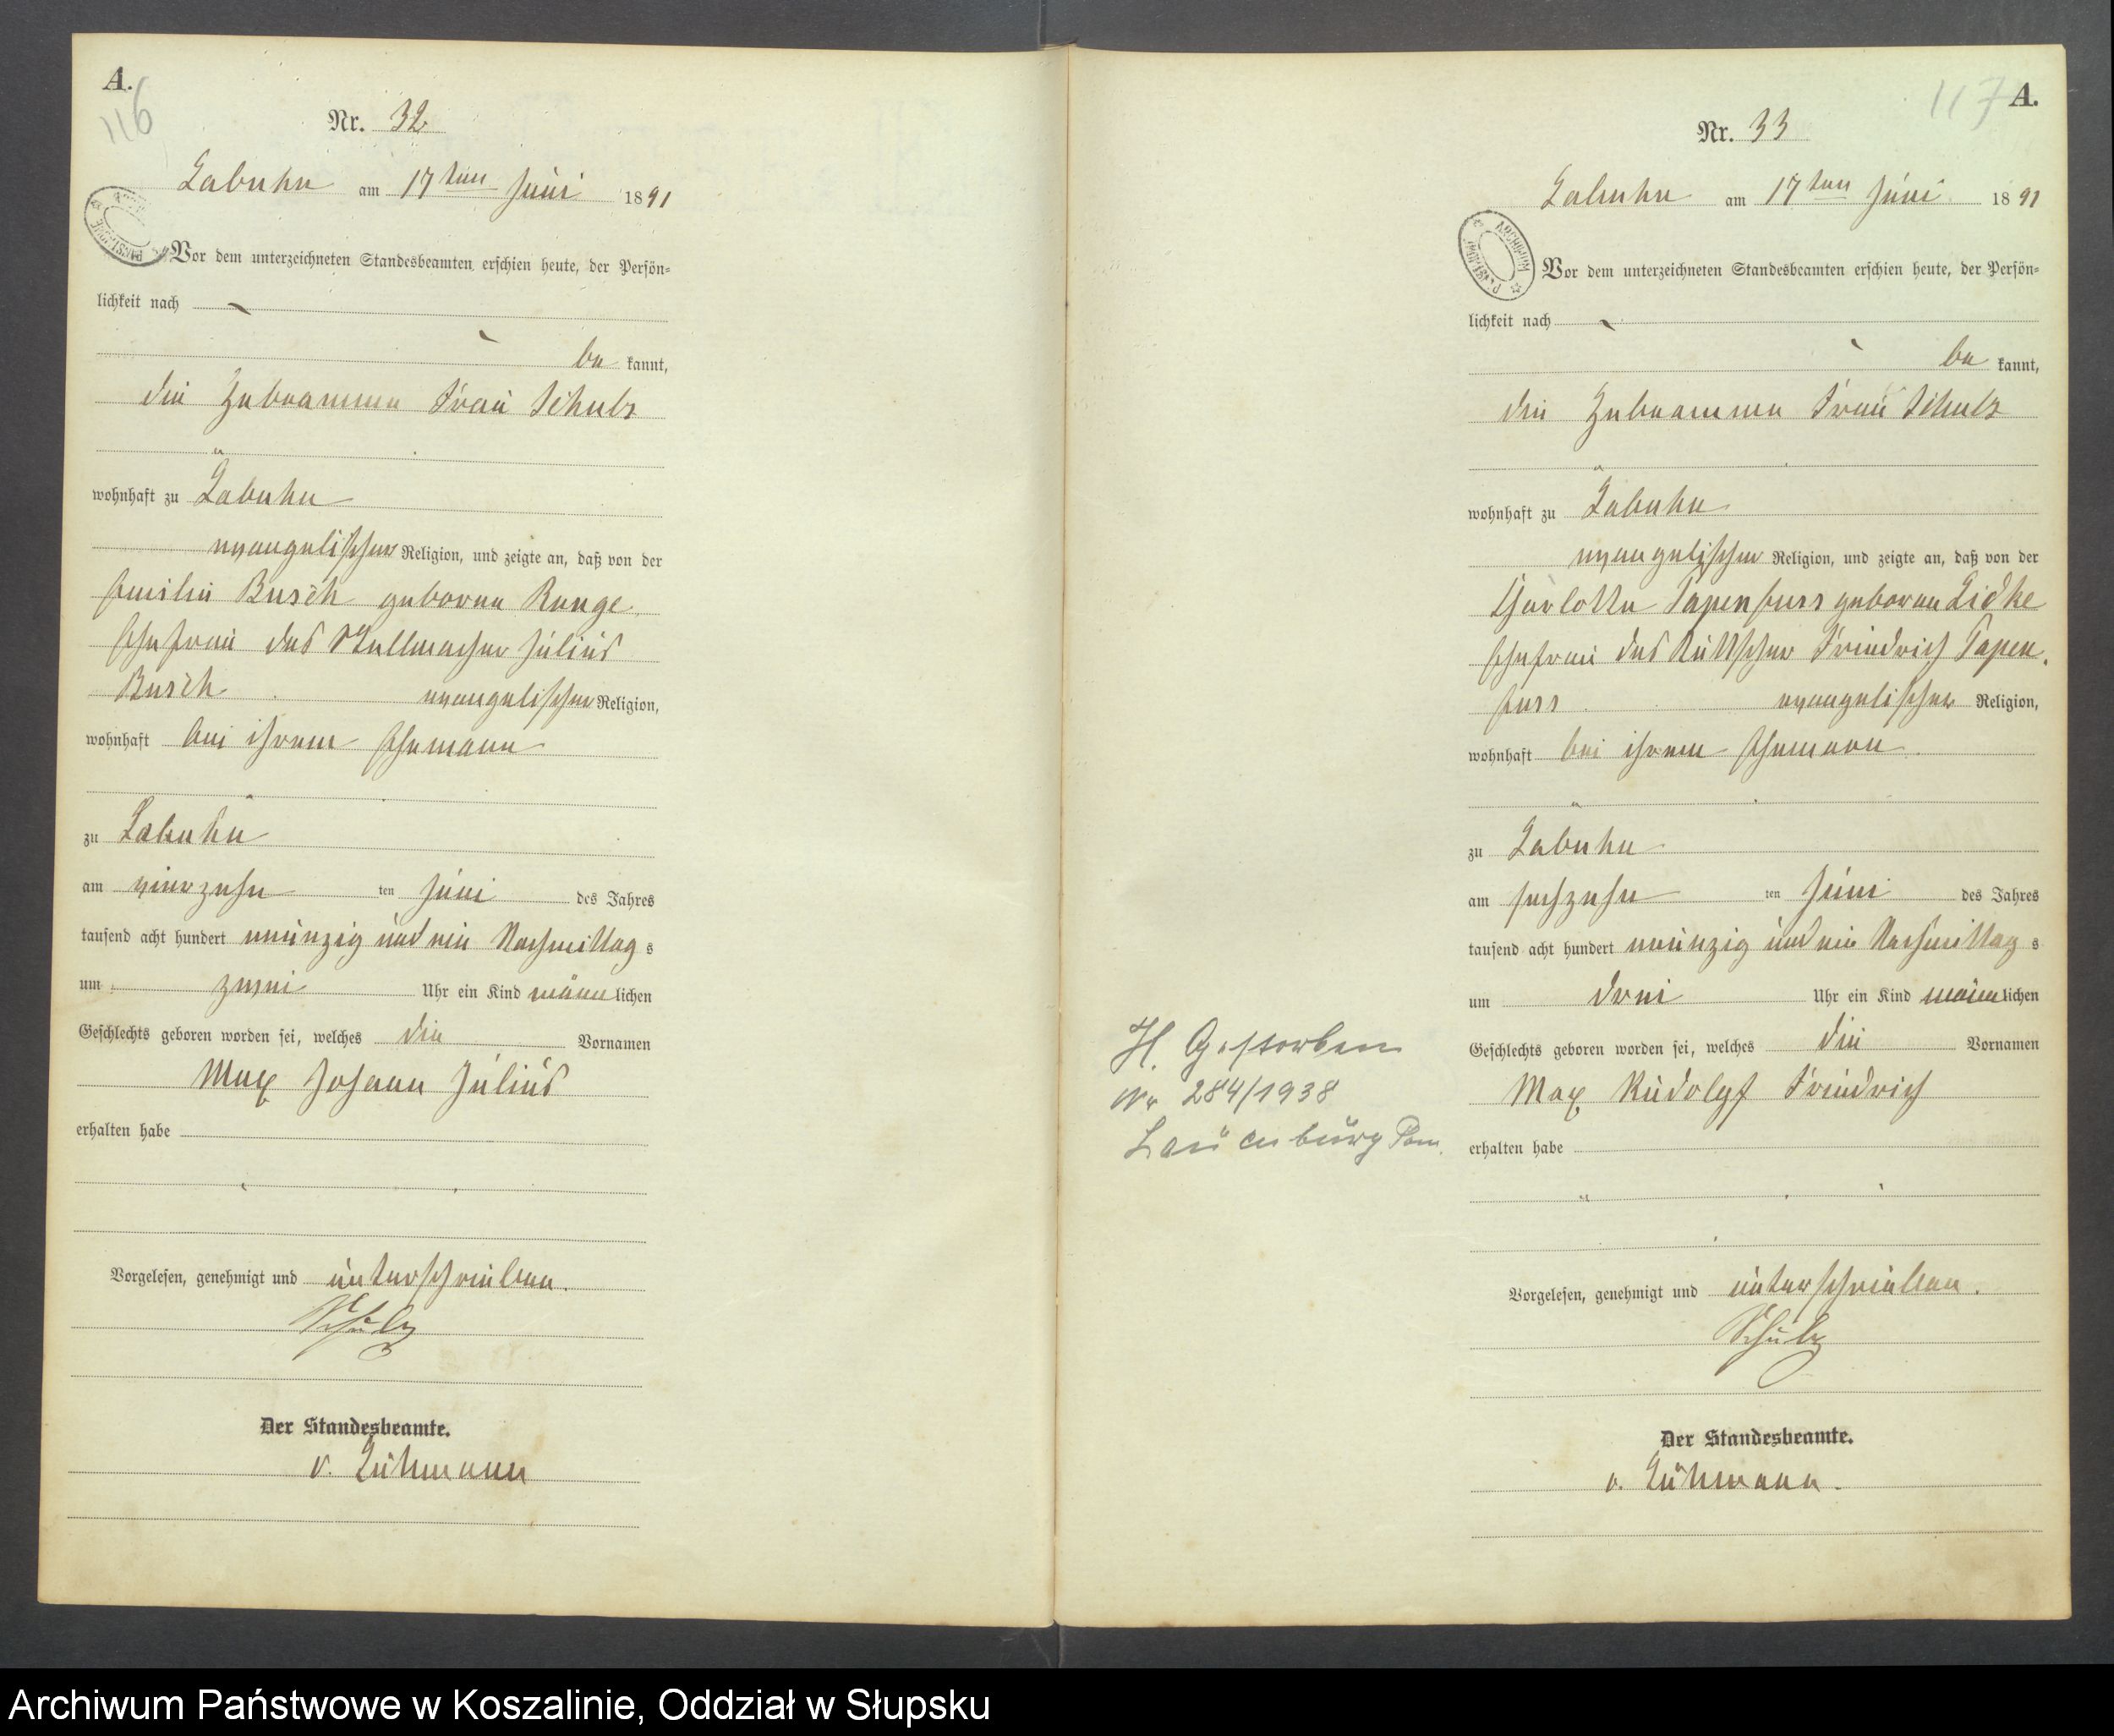 A.
116
Nr. 32
Labuhn am 17ten Juni 1891
Vor dem unterzeichneten Standesbeamten erschien heute, der Persön=
lichkeit nach
be kannt,
die Hebeamme Frau Schulz
wohnhaft zu Labuhn
evangelischer Religion, und zeigte an, daß von der
Emilie Busch geborene Runge
Ehefrau des Stellmacher Julius
Busch evangelischer Religion,
wohnhaft bei ihrem Ehemann
zu Labuhn
am vierzehn ten Juni des Jahres
tausend acht hundert neunzig und ein Nachmittag s
um zwei Uhr ein Kind männ lichen
Geschlechts geboren worden sei, welches die Vornamen
Max Johann Julius
erhalten habe
Vorgelesen, genehmigt und unterschrieben.
Schulz
Der Standesbeamte.
v. Lühmann
117 A.
Nr. 33
Labuhn am 17ten Juni 1891
Vor dem unterzeichneten Standesbeamten erschien heute, der Persön=
lichkeit nach
be kannt,
die Hebeamme Frau Schulz
wohnhaft zu Labuhn
evangelischer Religion, und zeigte an, daß von der
Charlotte Papenfuss geborene Lidke
Ehefrau des Kuttscher Friedrich Papen-
fuss evangelischer Religion,
wohnhaft bei ihrem Ehemann
zu Labuhn
am sechzehn ten Juni des Jahres
tausend acht hundert neunzig und ein Nachmittag s
um drei Uhr ein Kind männ lichen
Geschlechts geboren worden sei, welches die Vornamen
Max Rudolpf Friedrich
erhalten habe
H. Gestorben
Nr 284/1938
Lauenburg Pom.
Vorgelesen, genehmigt und unterschrieben.
Schulz
Der Standesbeamte.
v. Lühmann.
Archiwum Państwowe w Koszalinie, Oddział w Słupsku